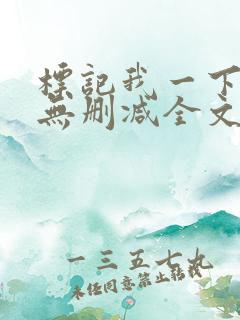 標記我一下
無刪减全文
一三五七九
未经同意禁止转载